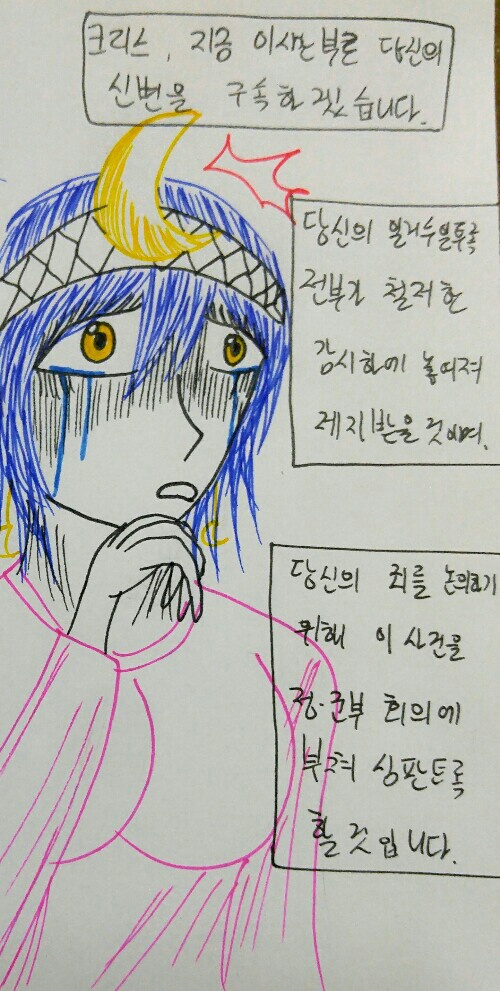 크리스, 지금 이시간부로 당신의
신변을 구속하겠습니다.
당신의 일거수일투족
전부가 철저한
감시하에 놓여져
제지받을 것이며,
당신의 죄를 논의하기
위해 이 사건을
정·군부 회의에
부쳐 심판토록
할 것입니다.